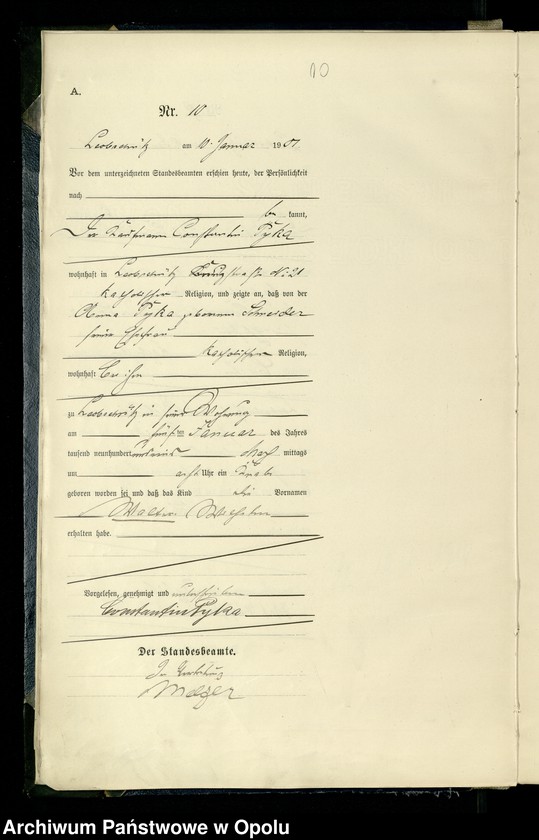 10
A.
Nr. 10
Leobschütz am 10. Januar 1901
Vor dem unterzeichneten Standesbeamten erschien heute, der Persönlichkeit
nach
be kannt,
Der Kaufmann Constantin Pyka
wohnhaft in Leobschütz straße No 21
katholischer Religion, und zeigte an, daß von der
Pyka geborenen Schneider
seiner Ehefrau
katholischer Religion,
wohnhaft bei ihm
zu Leobschütz in seiner Wohnung
am fünften Januar des Jahres
tausend neunhundert und eins Nach mittags
um acht Uhr ein Knabe
geboren worden sei und daß das Kind die Vornamen
Walter Wilhelm
erhalten habe.
Vorgelesen, genehmigt und unterschrieben
Constantin Pyka
Der Standesbeamte.
In Vertretung
Archiwum Państwowe w Opolu